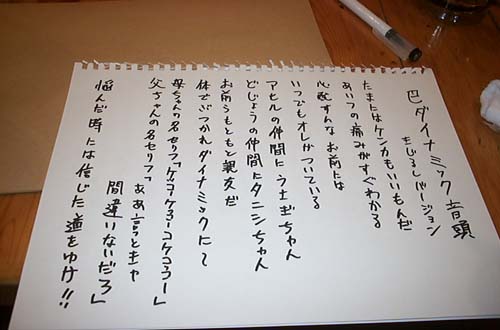 巴ダイナミック音頭
きじるしバージョン
たまにはケンカもいいもんだ
あいつの痛みがすぐわかる
心配すんなお前には
いつでもオレがついている
アヒルの仲間にうさぎちゃん
どじょうの仲間にタニシちゃん
お前らもともと親友だ
体でぶつかれダイナミックに〜
母ちゃんの名セリフ「ケッコケコーコケコッコー」
父ちゃんの名セリフ「ああ言っときゃ
間違いないだろ」
悩んだ時には信じた道をゆけ!!